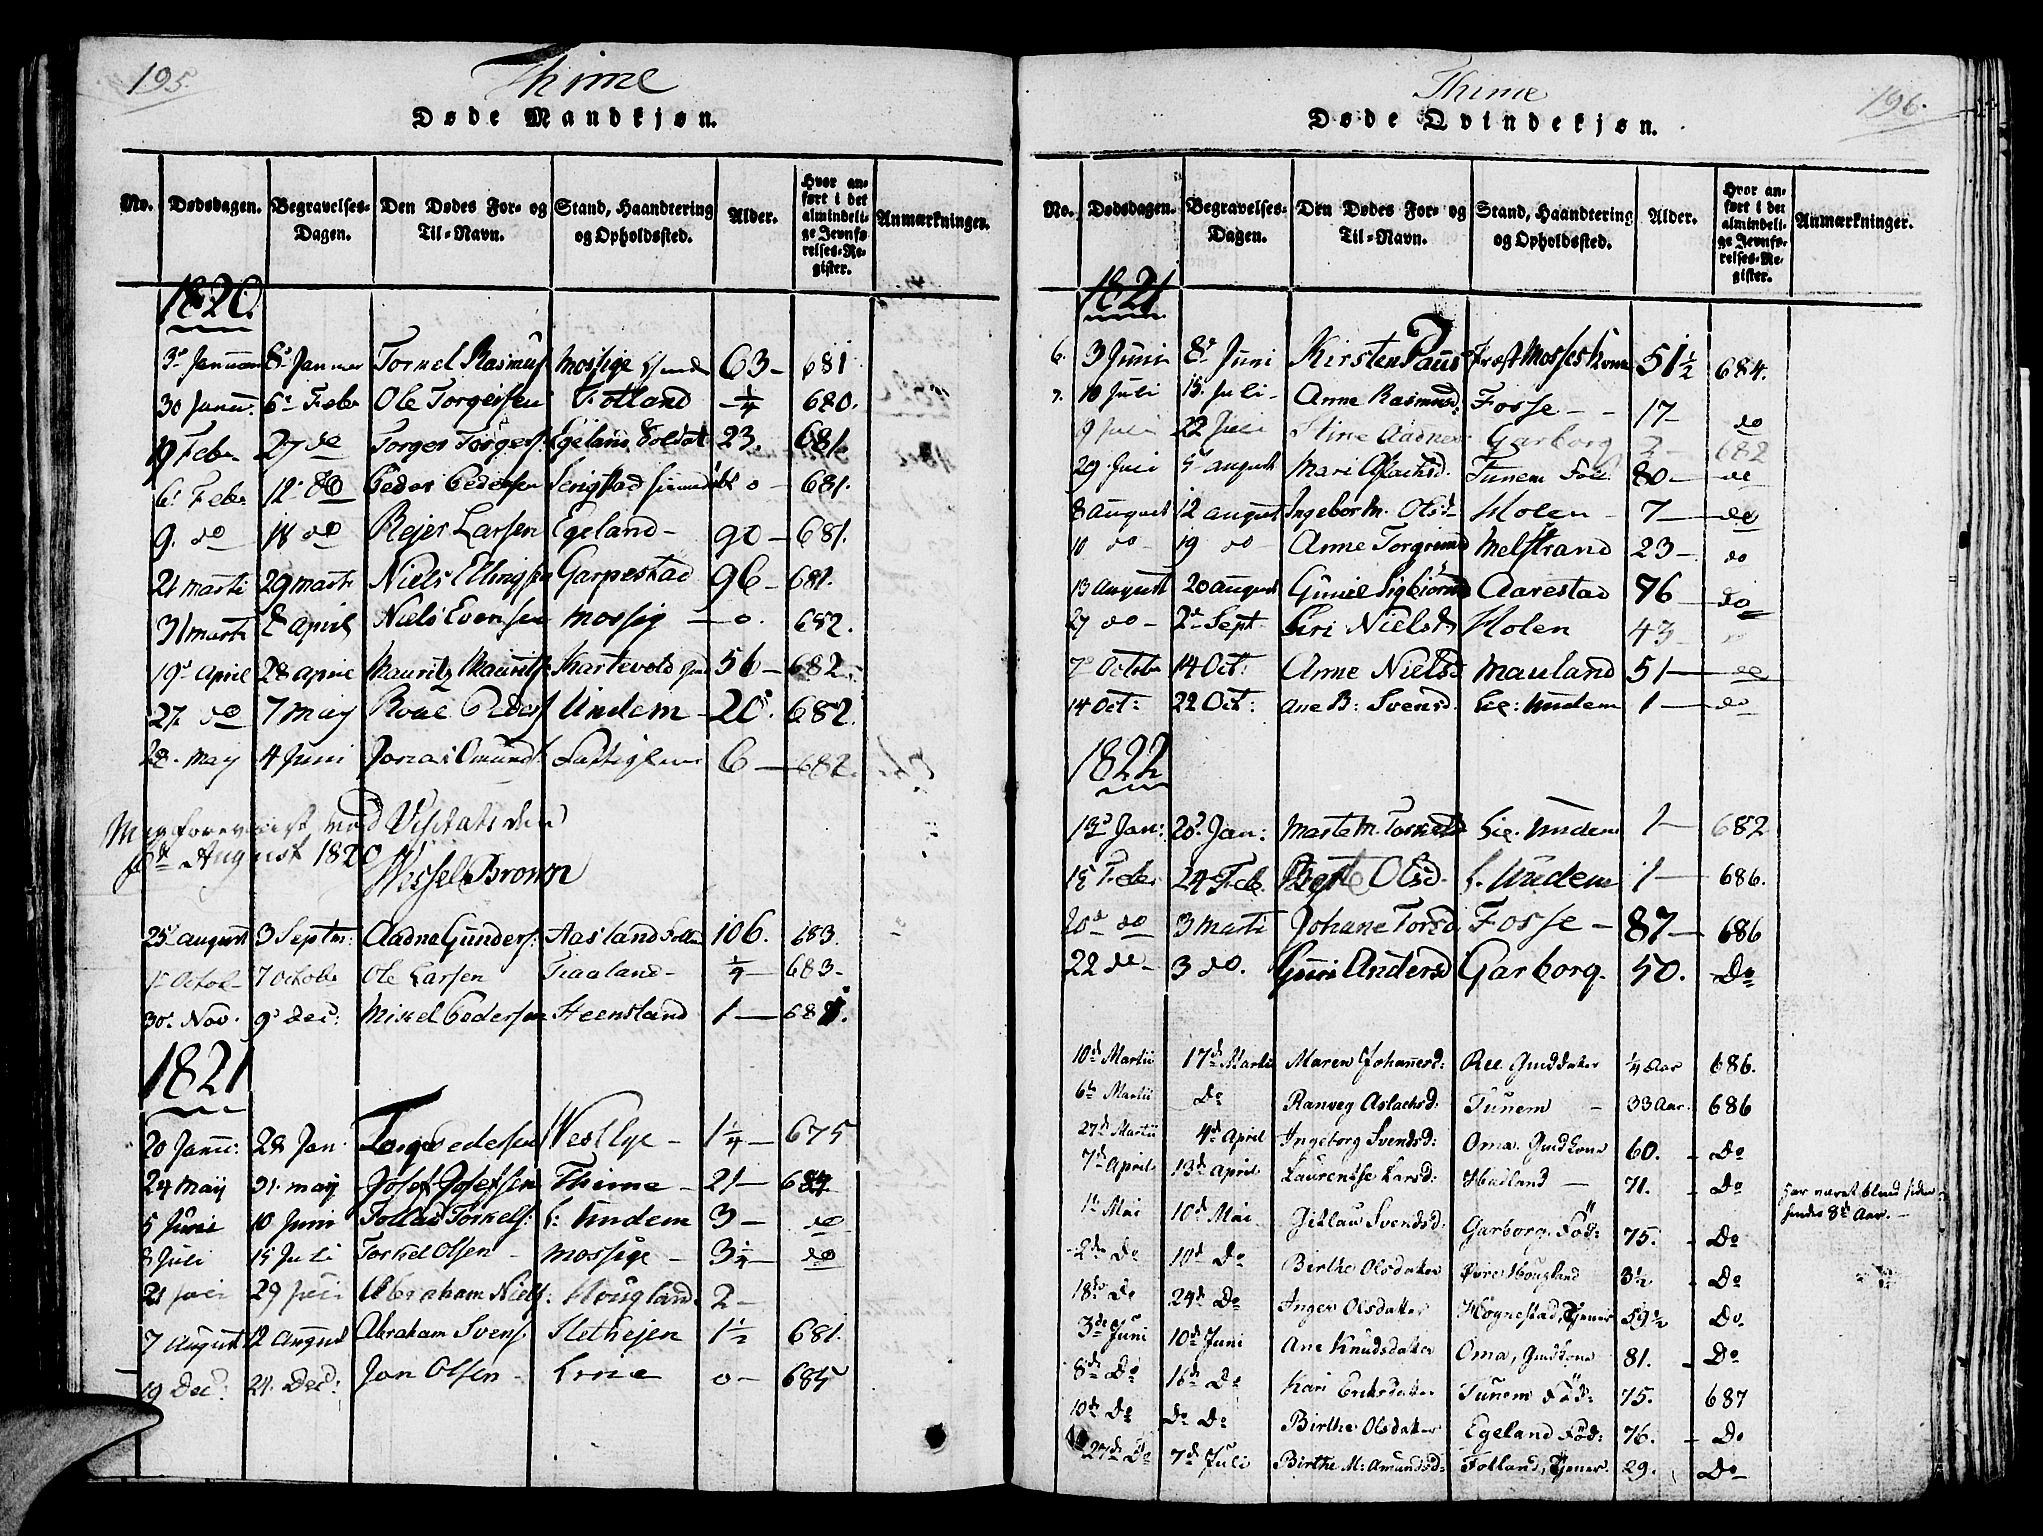 195.
Thime
Døde Mandkjøn.
No. Dødsdagen. Begravelses-Dagen. Den Dødes For- og Til-Navn. Stand, Haandtering og Opholdssted. Alder. Hvor anført i det almindelige Jevnførelses-Register. Anmærkninger.
1820.
8de Januar Torkel Rasmus Mossige 63 - 681
30 Janu. 6 Febr Ole Torgersen Folland 1/4 680.
19 Febr 27 do Torger Torgers. Egeland Soldat 23. 681.
6. Febr 12 do Peder Pedersen 0 - 681.
9. do 18 do Rejer Larsen Egeland - 90 - 681.
21 marti 29 marti Niels Ellingsen Garpestad 96 - 681.
31 marti 8 April Niels Evensen Mossig - 0. 682.
19d April 28 April Mauritz Mauritz 56 - 682
27 do 7 may Roal Peders Undem - 20. 682.
28. May 4 Juni Jonas Omund 6 - 682.
1820
Wessel Brown
25d august 3 Septm: Aadne Gunders: Aasland 106. 683.
1 Octob 7 Octobr Ole Larsen Tiaaland - 1/4 - 683 -
30. Nov. 9d dec: Mikel Pedersen Heensland 1 -
1821
20 Janu: 28 Jan. Vestlye - 1 1/4 - 675
24 May 31. may Josef Josefsen Thime - 21 - 684
5 Juni 10 Juni Tollag Torkels: L: Undem 3 - do
8 Juli 15 Juli Torkel Olsen - Mossige - 3 1/4 - do
21 Juli 29 Juli Abraham Niels: Hougland. 2 -
7 August 12 August Abraham Svens. Slethejen 1 1/2 681.
19 Dec: 21. Dec: Jon Olsen - Line 0 - 685
196.
Thime
Døde Qvindekjøn.
No. Dødsdagen. Begravelses-Dagen. Den Dødes For- og Til-Navn. Stand, Haandtering og Opholdssted. Alder. Hvor anført i det almindelige Jevnførelses-Register. Anmærkninger.
1821
6. 3 Juni 8d Juni Kirsten Paus Præst Mosses Kone 51 1/2 684.
7. 10 Juli 15. Juli - Anne Rasmusd: Fosse - - 17 - do
9 Juli 22 Juli Stine Aadnes Garborg 2 - 682
29. Juli 5d august Mari Aslachsd. Tunem 80 - do
8 August 12 august Ingebor M. Olsd Holen - 7 - do
10 do - 19 do - Anne Torgrimd Melstrand 23 - do
13 August 20 august Guniel Sigbiørnsd Aarestad 76 - do
27 do - 2d Sept. Siri Nielsd. Holen 43 -
7d Octobr 14 Oct: Anne Nielsd Mauland 51 - do
14 Oct: 22 Oct: Ane B: Svensd. Lie: Undem 1 - do
1822
13d Jan: 20d Jan: Marte M. Torkelsd Lie. Undem 1 - 682
24 Feb. Berte Olsd. L. Undem 1 - 686.
20d do 3 Marti Johane Torsd. Fosse - 87 - 686
22 do - 3 do. Guri Andersd Garborg. 50. Do
10de Martii 17de Martii Maren Johannesd: Ree 1/4 Aar 686.
6te Martii Do Ranveg Aslachsd. Tunem - 33 Aar. 686
27de Martii 4de April Ingeborg Svendsd: Oma. Gmdkone 60. - Do
7de April 13de April Laurentse Larsd: Hadland - 71. - Do Har været blind siden hendes 8de Aar.
1te Mai 10de Mai Jillau Svendsd. Garborg. Fød: 75. - Do
2de Do 10de Do Birthe Olsdatter Øvre Hougland 3 1/2 - Do
18de Do 24de Do Inger Olsdatter Hognestad, Tjener 59 1/2 - Do.
3de Juni 10de Juni Ane Knudsdatter Oma, Gmdkone 81. - Do
8de Do 16de Do Kari Eriksdatter Tunem Fød: 75. 687
10de Do Do Do Birthe Olsdatter Egeland Fød: 76. - Do
27de Do 7de Juli Birthe M: Amundsd: Folland, Tjener. 29. Do